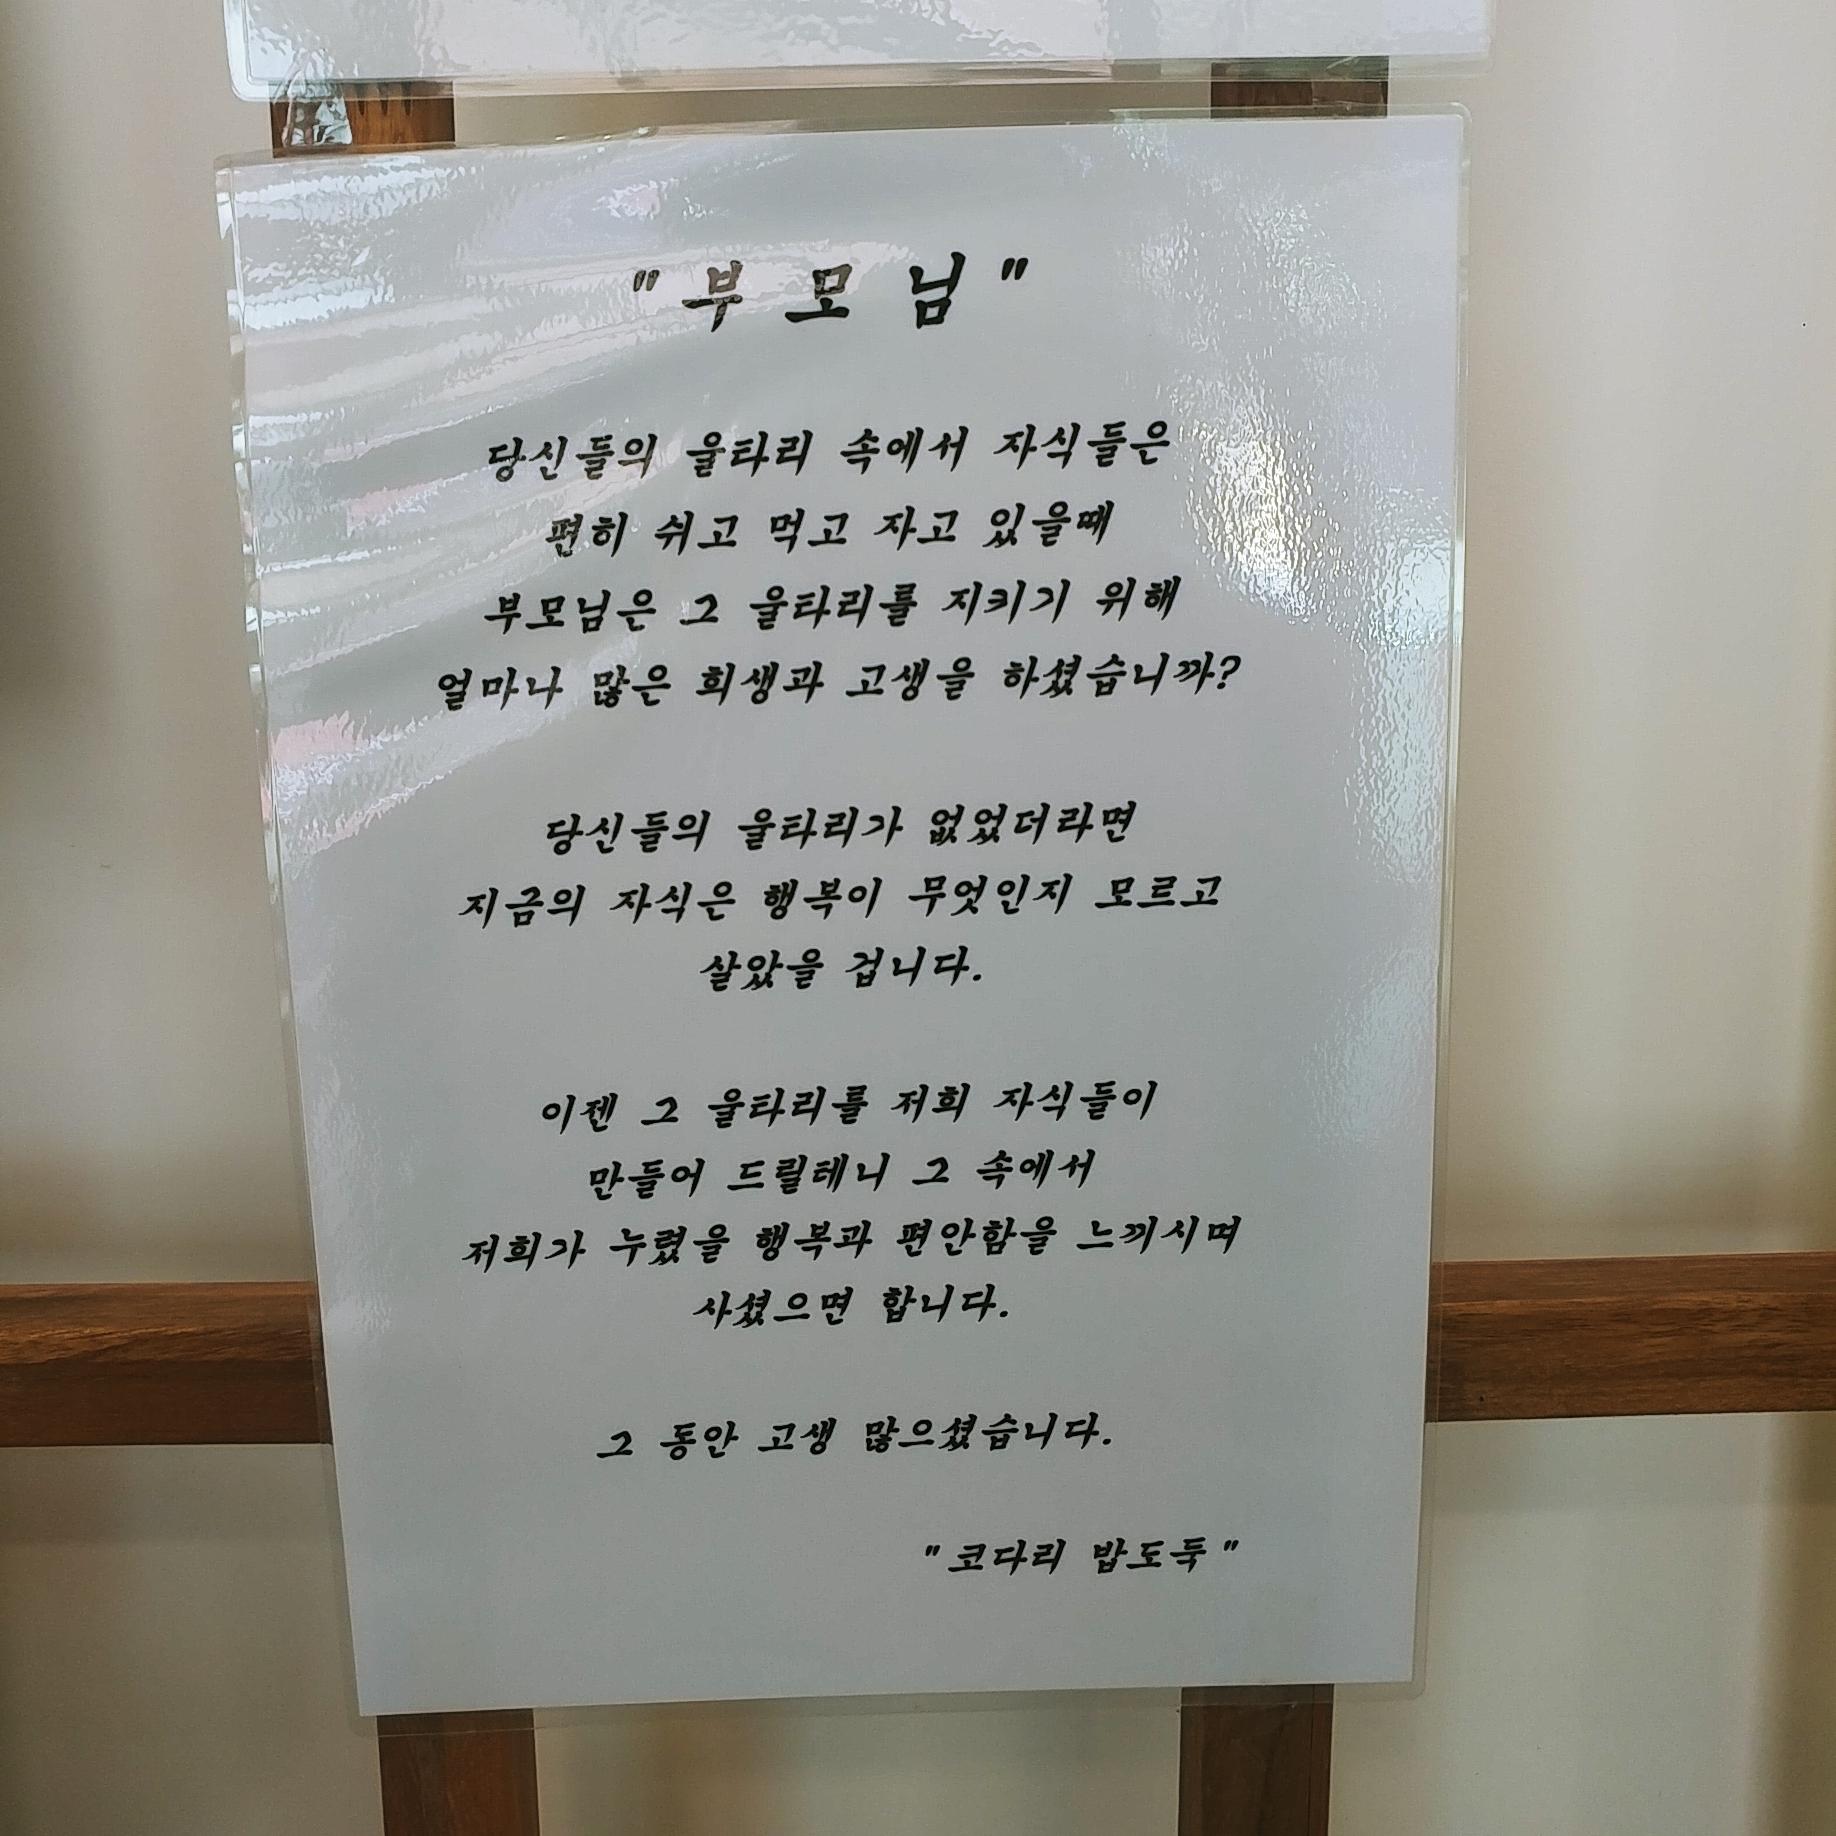 "부 모 님"
당신들의 울타리 속에서 자식들은
편히 쉬고 먹고 자고 있을때
부모님은 그 울타리를 지키기 위해
얼마나 많은 희생과 고생을 하셨습니까?
당신들의 울타리가 없었더라면
지금의 자식은 행복이 무엇인지 모르고
살았을 겁니다.
이젠 그 울타리를 저희 자식들이
만들어 드릴테니 그 속에서
저희가 누렸을 행복과 편안함을 느끼시며
사셨으면 합니다.
그 동안 고생 많으셨습니다.
"코다리 밥도둑"